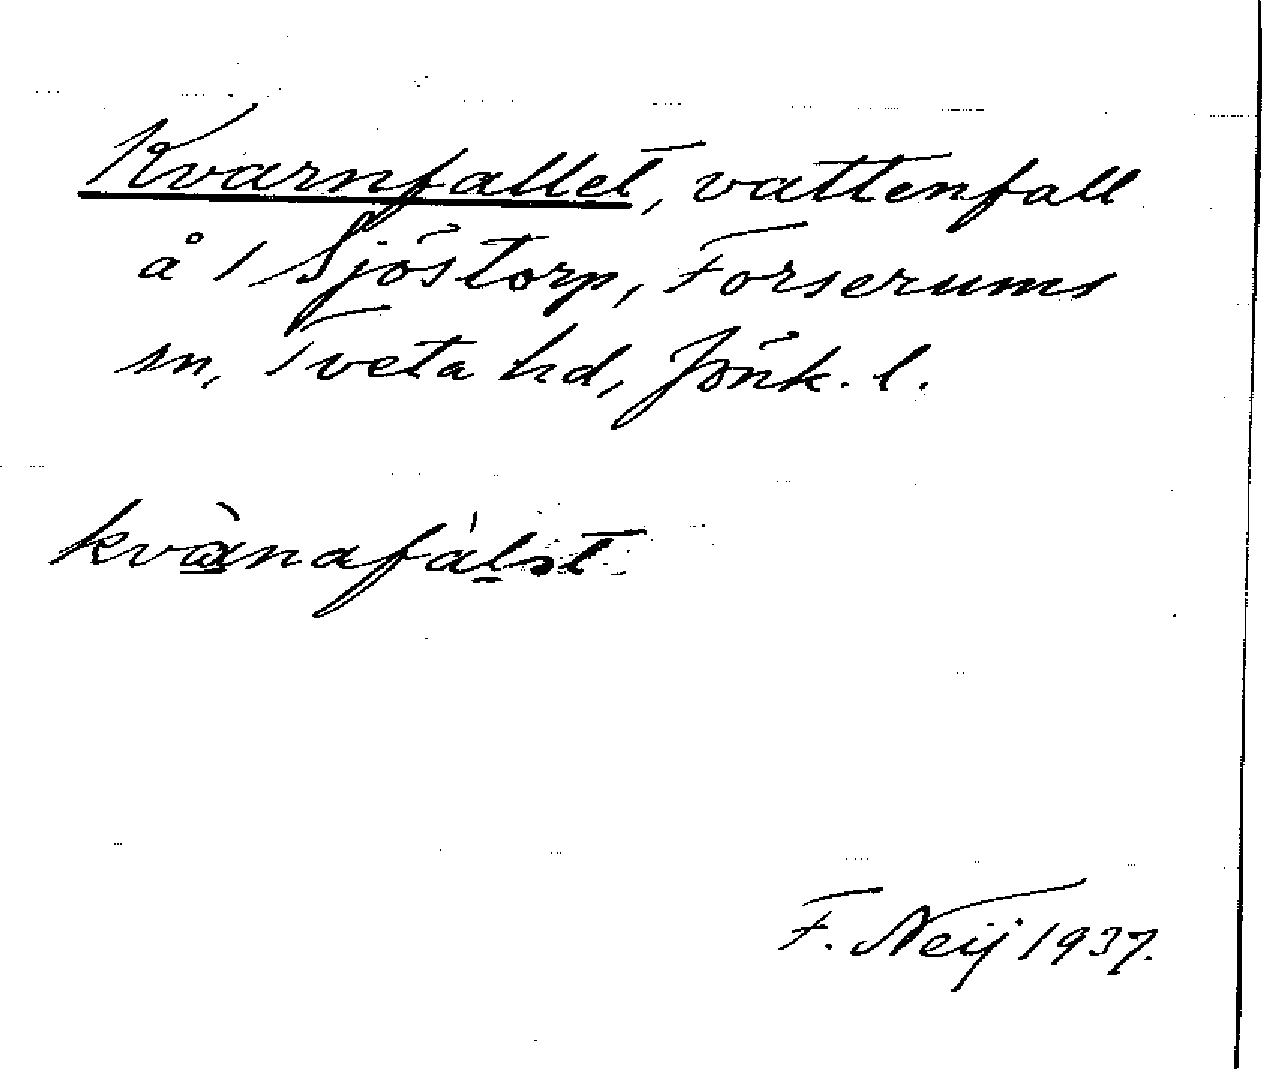 Kvarnfallet, vattenfall
å 1 Sjöstorp, Forserums
sn, Tveta hd, Jönk. l.
F. Neij 1937.